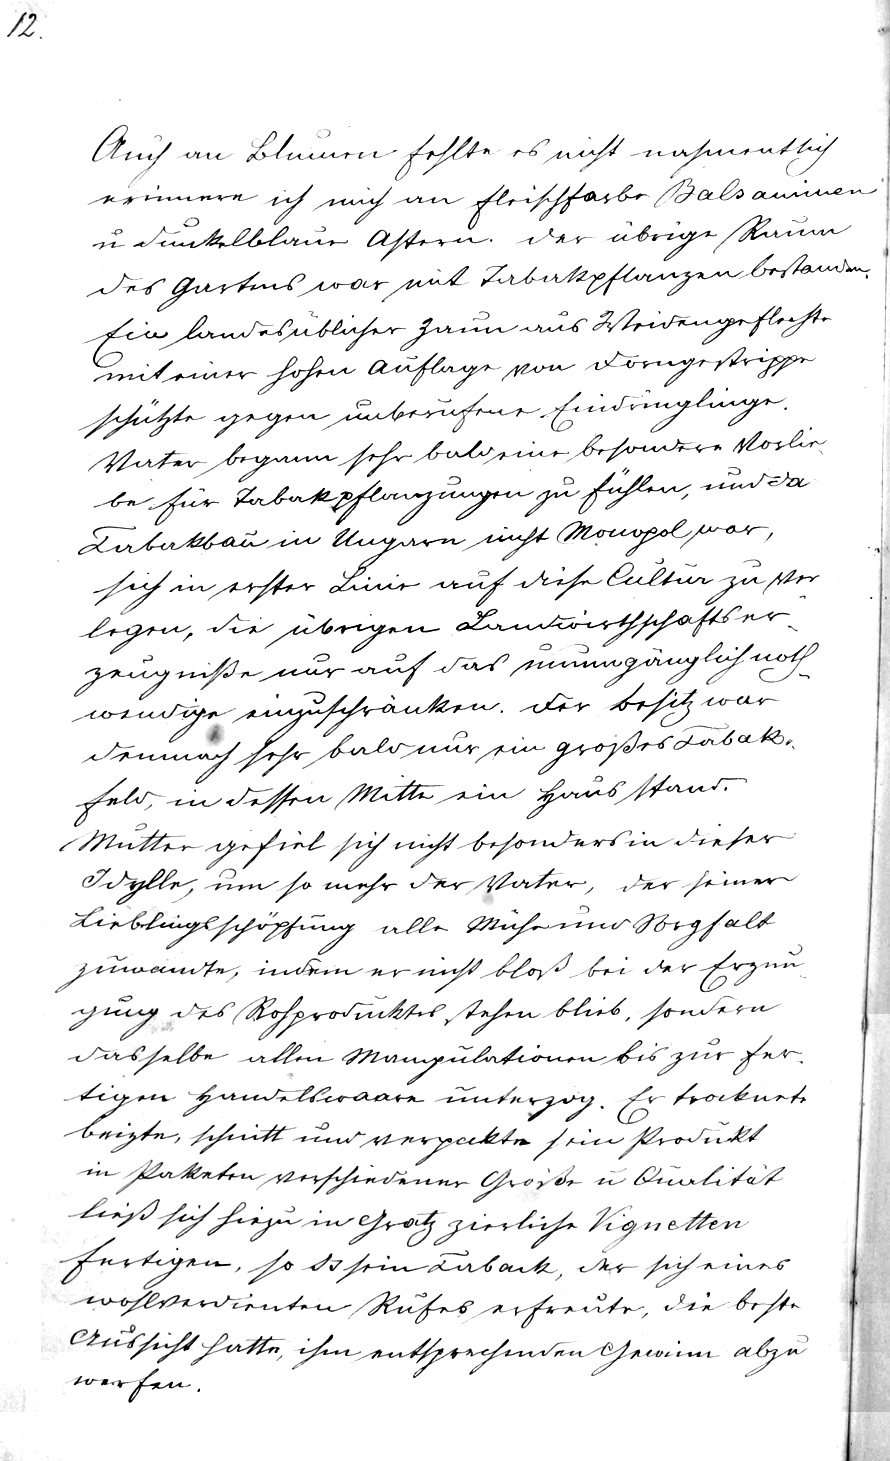 12.
Auch an Blumen fehlte es nicht nahmentlich
erinnere ich mich an fleischfarbe Balsaminen
u dunkelblaue Astern. Der übrige Raum
des Gartens war mit Tabakpflanzen bestanden.
Ein landesüblicher Zaun aus Weidengeflechte
mit einer hohen Auflage von Dorngestrippe
schützte gegen unberufene Eindringlinge.
Vater begann sehr bald eine besondere Vorlie-
be für Tabakpflanzungen zu fühlen, und da
Tabakbau in Ungarn nicht Monopol war,
sich in erster Linie auf diese Cultur zu ver
legen, die übrigen Landwirthschaftser-
zeugniße nur auf das unumgänglich noth-
wendige einzuschränken. Der Besitz war
demnach sehr bald nur ein großes Tabak-
feld, in dessen Mitte ein Haus stand.
Mutter gefiel sich nicht besonders in dieser
Idylle, um so mehr der Vater, der seiner
Lieblingsschöpfung alle Mühe und Sorgfalt
zuwandte, indem er nicht bloß bei der Erzeu-
gung des Rohproducktes stehen blieb, sondern
dasselbe allen Manipulationen bis zur fer-
tigen Handelswaare unterzog. Er trocknete
beizte, schnitt und verpackte sein Produkt
in Paketen verschiedener Größe u Qualität
ließ sich hiezu in Gratz zierliche Vignetten
fertigen, so ds sein Taback, der sich eines
wohlverdienten Rufes erfreute, die beste
Aussicht hatte, ihm entsprechenden Gewinn abzu
werfen.